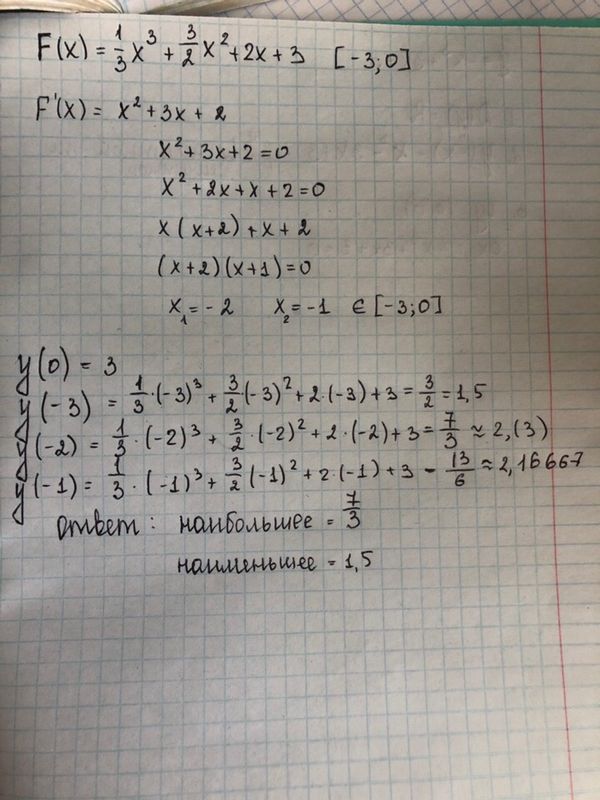 F(x) = 1/3 x³ + 3/2 x² + 2x + 3 [-3;0]
F'(x) = x² + 3x + 2
x² + 3x + 2 = 0
x² + 2x + x + 2 = 0
x (x+2) + x + 2
(x+2)(x+1) = 0
x₁ = -2 x₂ = -1 ∈ [-3;0]
y(0) = 3
y(-3) = 1/3 · (-3)³ + 3/2 · (-3)² + 2·(-3) + 3 = 3/2 = 1,5
y(-2) = 1/3 · (-2)³ + 3/2 · (-2)² + 2·(-2) + 3 = 7/3 ≈ 2,(3)
y(-1) = 1/3 · (-1)³ + 3/2 (-1)² + 2·(-1) + 3 - 13/6 ≈ 2,16667
ответ: наибольшее = 7/3
наименьшее = 1,5